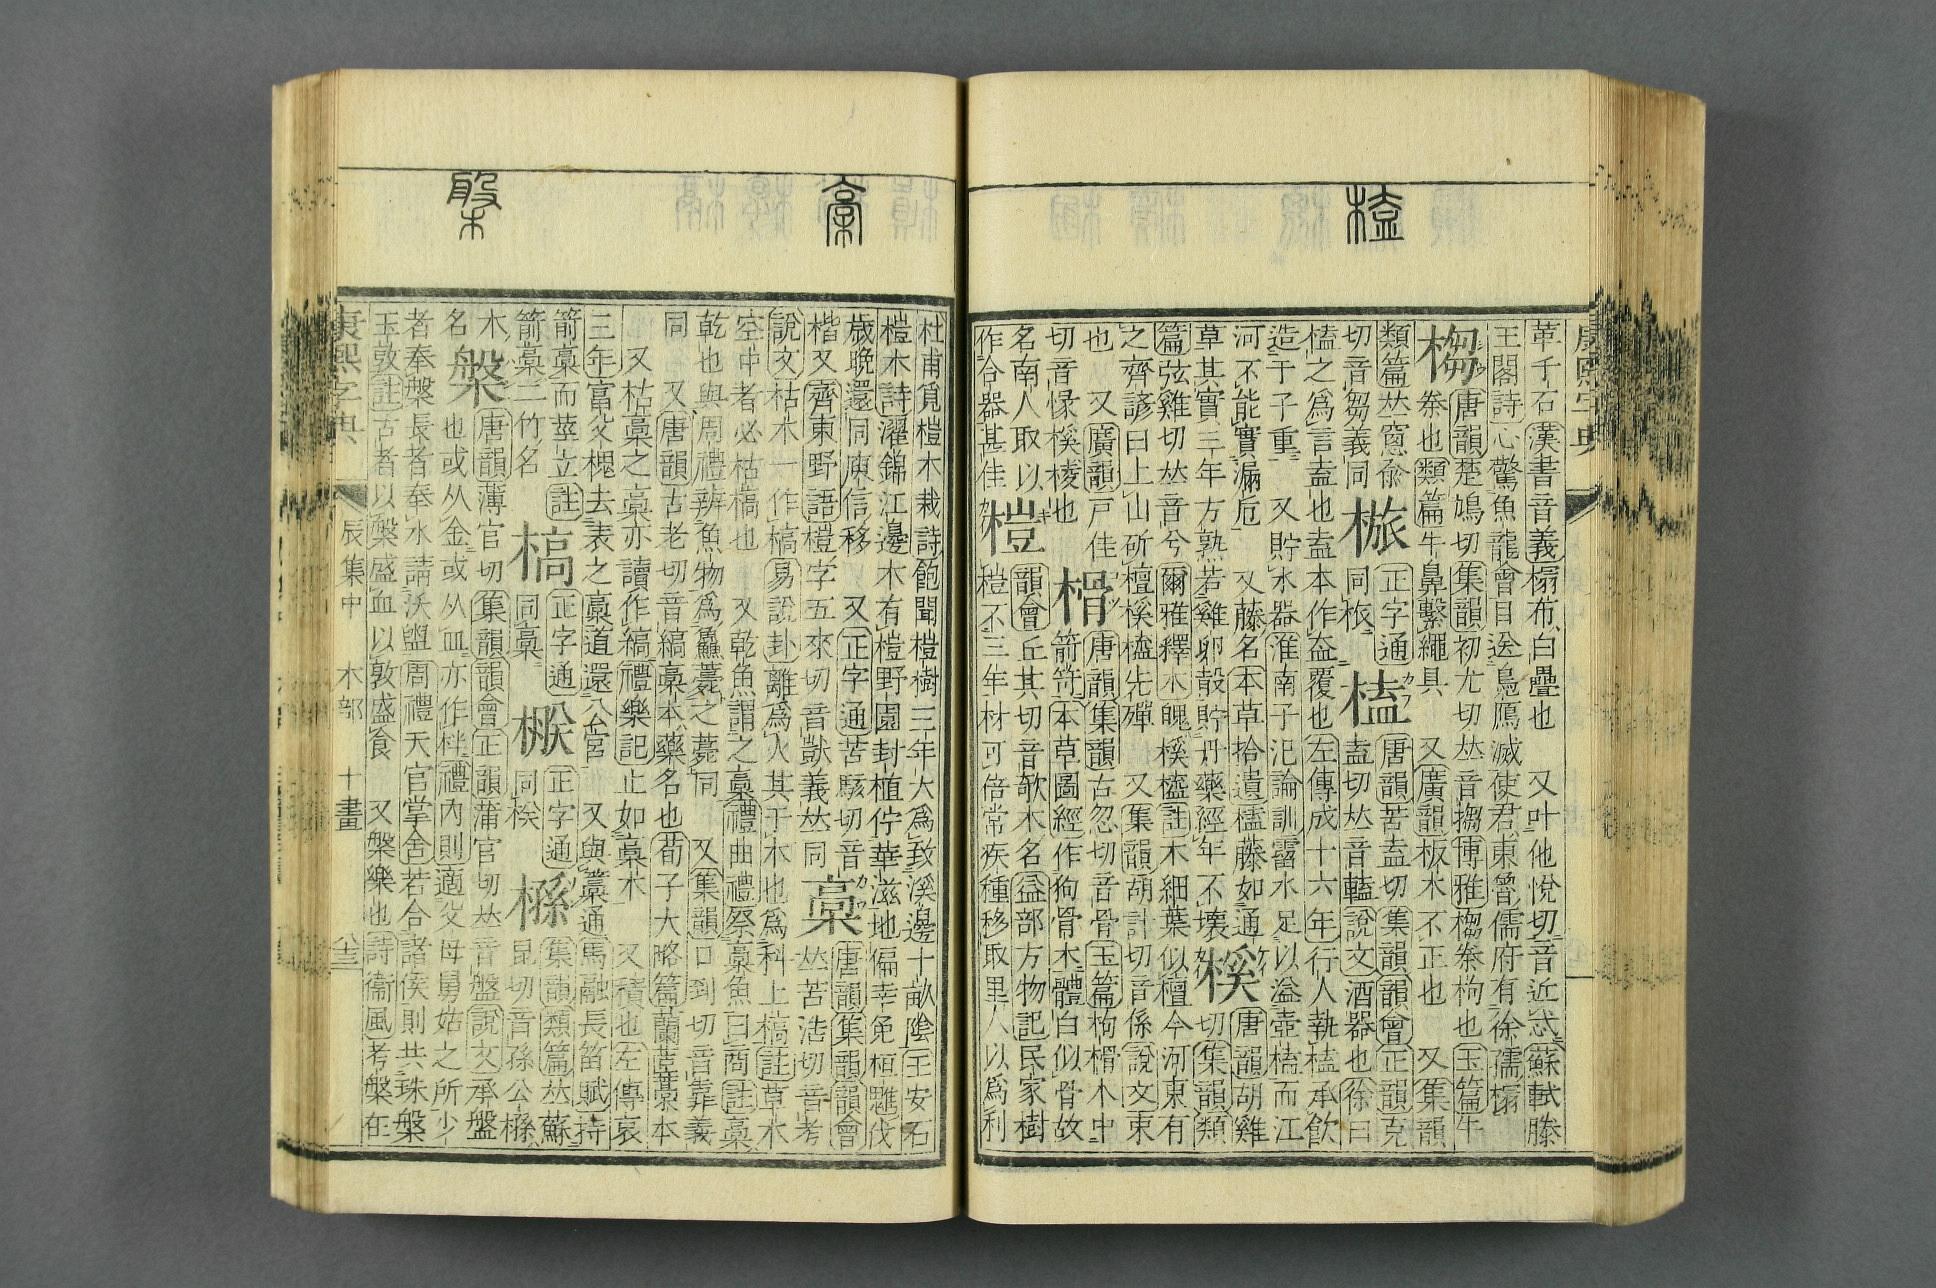 榼
革千石漢書音義榻布白疊也　又叶他悅切音近忒蘇軾滕
王閣詩心驚魚龍會目送烏鴈滅使君東魯儒府有徐孺榻
㮮唐韻楚鳩切集韻初尤切𠀤音搊博雅㮮桊枸也玉篇牛
桊也類篇牛鼻繫繩具　又廣韻板木不正也　又集韻
類篇𠀤窻俞
切音芻義同　正字通同㭃　榼唐韻苦盍切集韻韻會正韻克
盍切𠀤音㔠說文酒器也徐曰
榼之爲言盍也盍本作盇覆也左傳成十六年行人執榼承飮
造于子重　又貯水器淮南子氾論訓霤水足以溢壺榼而江
河不能實漏卮　又藤名本草拾遺榼藤如通草其實三年方熟若雞卵殻貯丹藥經年不壞
榽唐韻胡雞切集韻類
篇弦雞切𠀤音兮爾雅釋木魄榽橀註木細葉似檀今河東有
之齊諺曰上山斫檀榽橀先殫　又集韻胡計切音係說文東
也　又廣韻戸佳
切音膎榽棱也
榾唐韻集韻古忽切音骨玉篇枸榾木中
箭笴本草圖經作狗骨木體白似骨故
名南人取以
作合器甚佳
榿韻會丘其切音欹木名益部方物記民家樹
榿不三年材可倍常疾種移取里人以爲利
藁
槃
杜甫覓榿木栽詩飽聞榿樹三年大爲致溪邊十畝陰王安石
榿木詩濯錦江邊木有榿野園封植佇華滋地偏幸免桓魋伐
歳晚還同庾信移　又正字通苦駭切音
楷又齊東野語榿字五來切音獃義𠀤同
槀唐韻集韻韻會
𠀤苦浩切音考
說文枯木一作槁易說卦離爲火其于木也爲科上槁註草木
空中者必枯槁也　又乾魚謂之槀禮曲禮祭槀魚曰商註槀
乾也與周禮辨魚物爲鱻薧之薧同　又集韻口到切音靠義
同　又唐韻古老切音縞槀本藥名也荀子大略篇蘭茞槀本
又枯槀之槀亦讀作縞禮樂記止如槀木　又積也左傳哀
三年富父槐去表之槀道還公宮　又與藁通馬融長笛賦持
箭槀而莖立註
箭槀二竹名
槁正字通
同槀
正字通
同㮢
集韻類篇𠀤蘇
昆切音孫公
木
名
槃唐韻薄官切集韻韻會正韻蒲官切𠀤音盤說文承盤
也或从金或从血亦作柈禮內則適父母舅姑之所少
者奉槃長者奉水請沃盥周禮天官掌舍若合諸侯則共珠槃
玉敦註古者以槃盛血以敦盛食　又槃樂也詩衞風考槃在
康熙字典
辰集中　木部　十畫